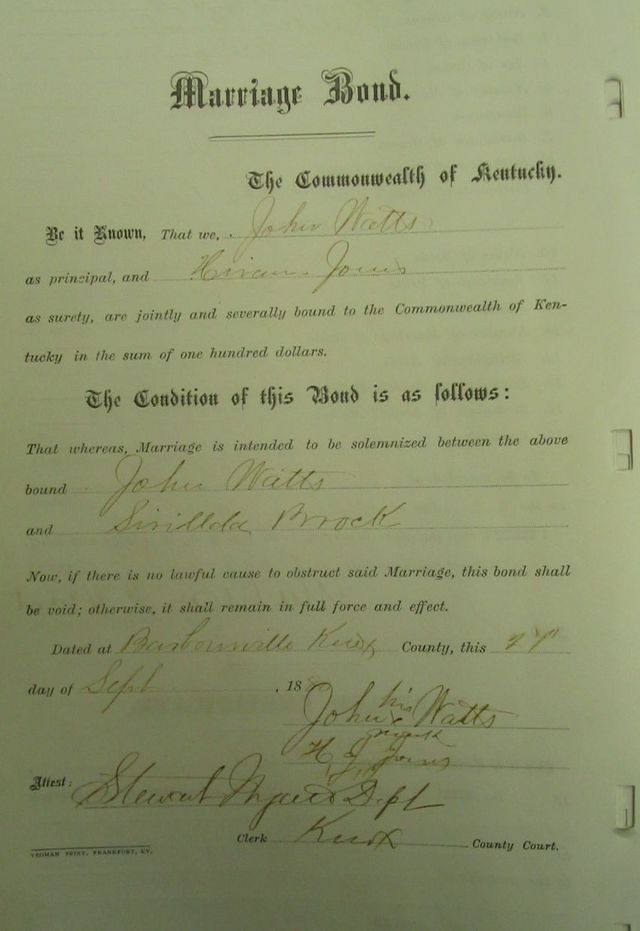 Marriage Bond.
The Commonwealth of Kentucky.
Be it Known, That we, John Watts
as principal, and Hiram Jones
as surety, are jointly and severally bound to the Commonwealth of Ken-
tucky in the sum of one hundred dollars.
The Condition of this Bond is as follows:
That whereas, Marriage is intended to be solemnized between the above
bound John Watts
and Sirillda Brock
Now, if there is no lawful cause to obstruct said Marriage, this bond shall
be void; otherwise, it shall remain in full force and effect.
Dated at Barbourville Knox County, this
day of Sept , 18
his
John x Watts
mark
H Jones
Attest: Stewart Dept
Clerk Knox County Court.
YEOMAN PRINT, FRANKFORT, KY.